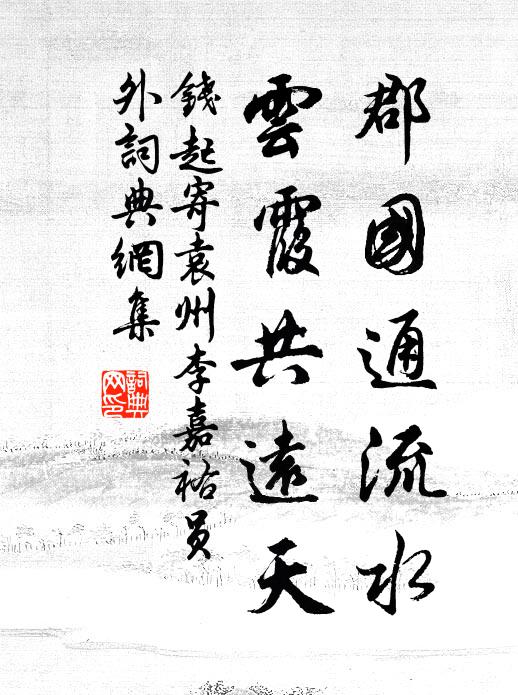 郡國通流水
雲霞共遠天
錢起寄袁州李嘉祐員
外詞典網集
詞典
网印